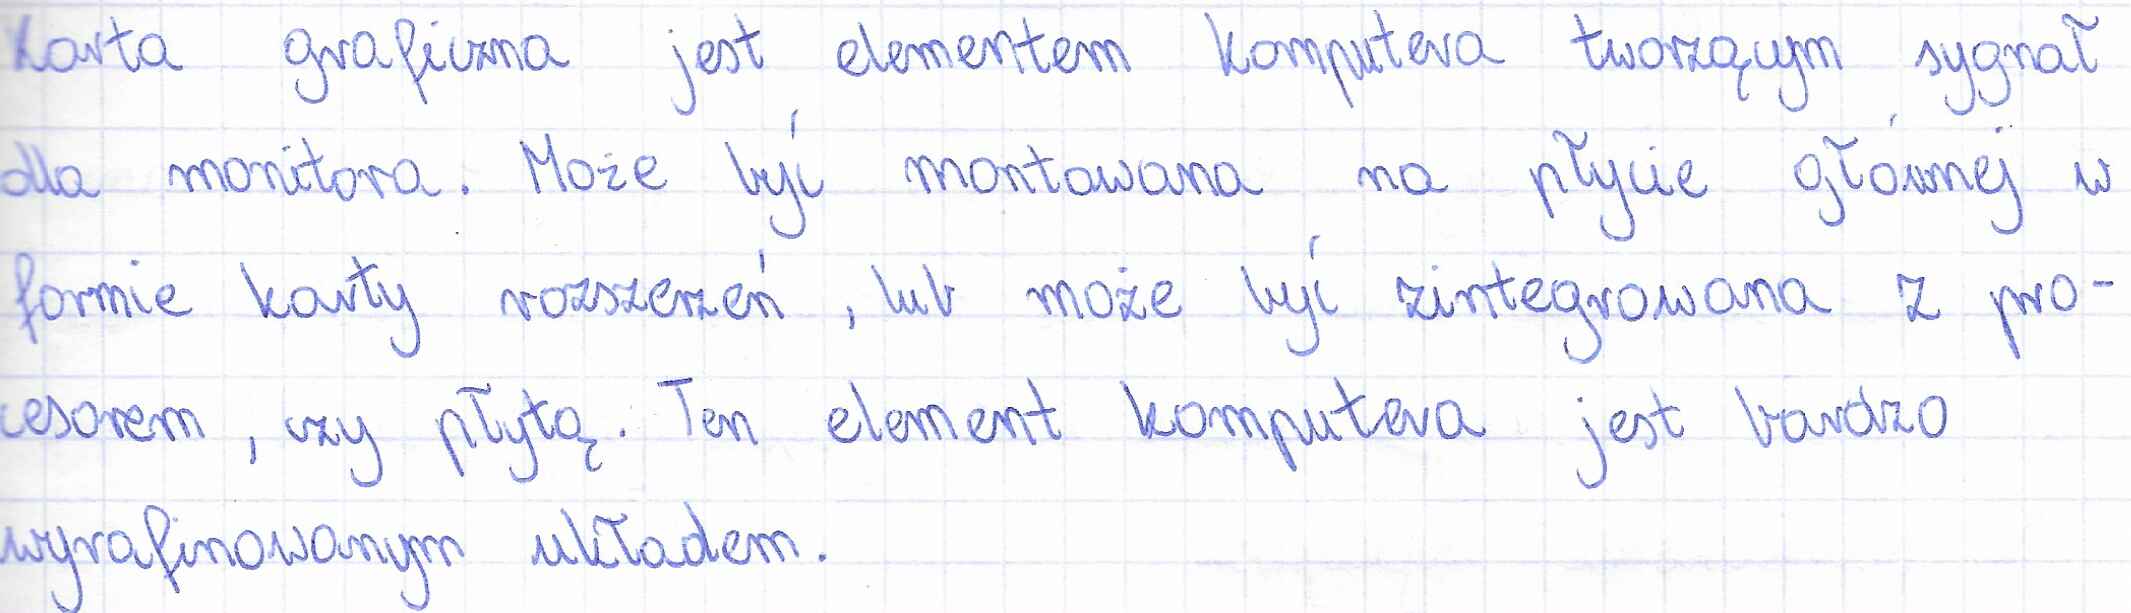 Karta graficzna jest elementem komputera tworzącym sygnał
dla monitora. Może być montowana na płycie głównej w
formie karty rozszerzeń, lub może być zintegrowana z pro-
cesorem, czy płytą. Ten element komputera jest bardzo
wyrafinowanym układem.